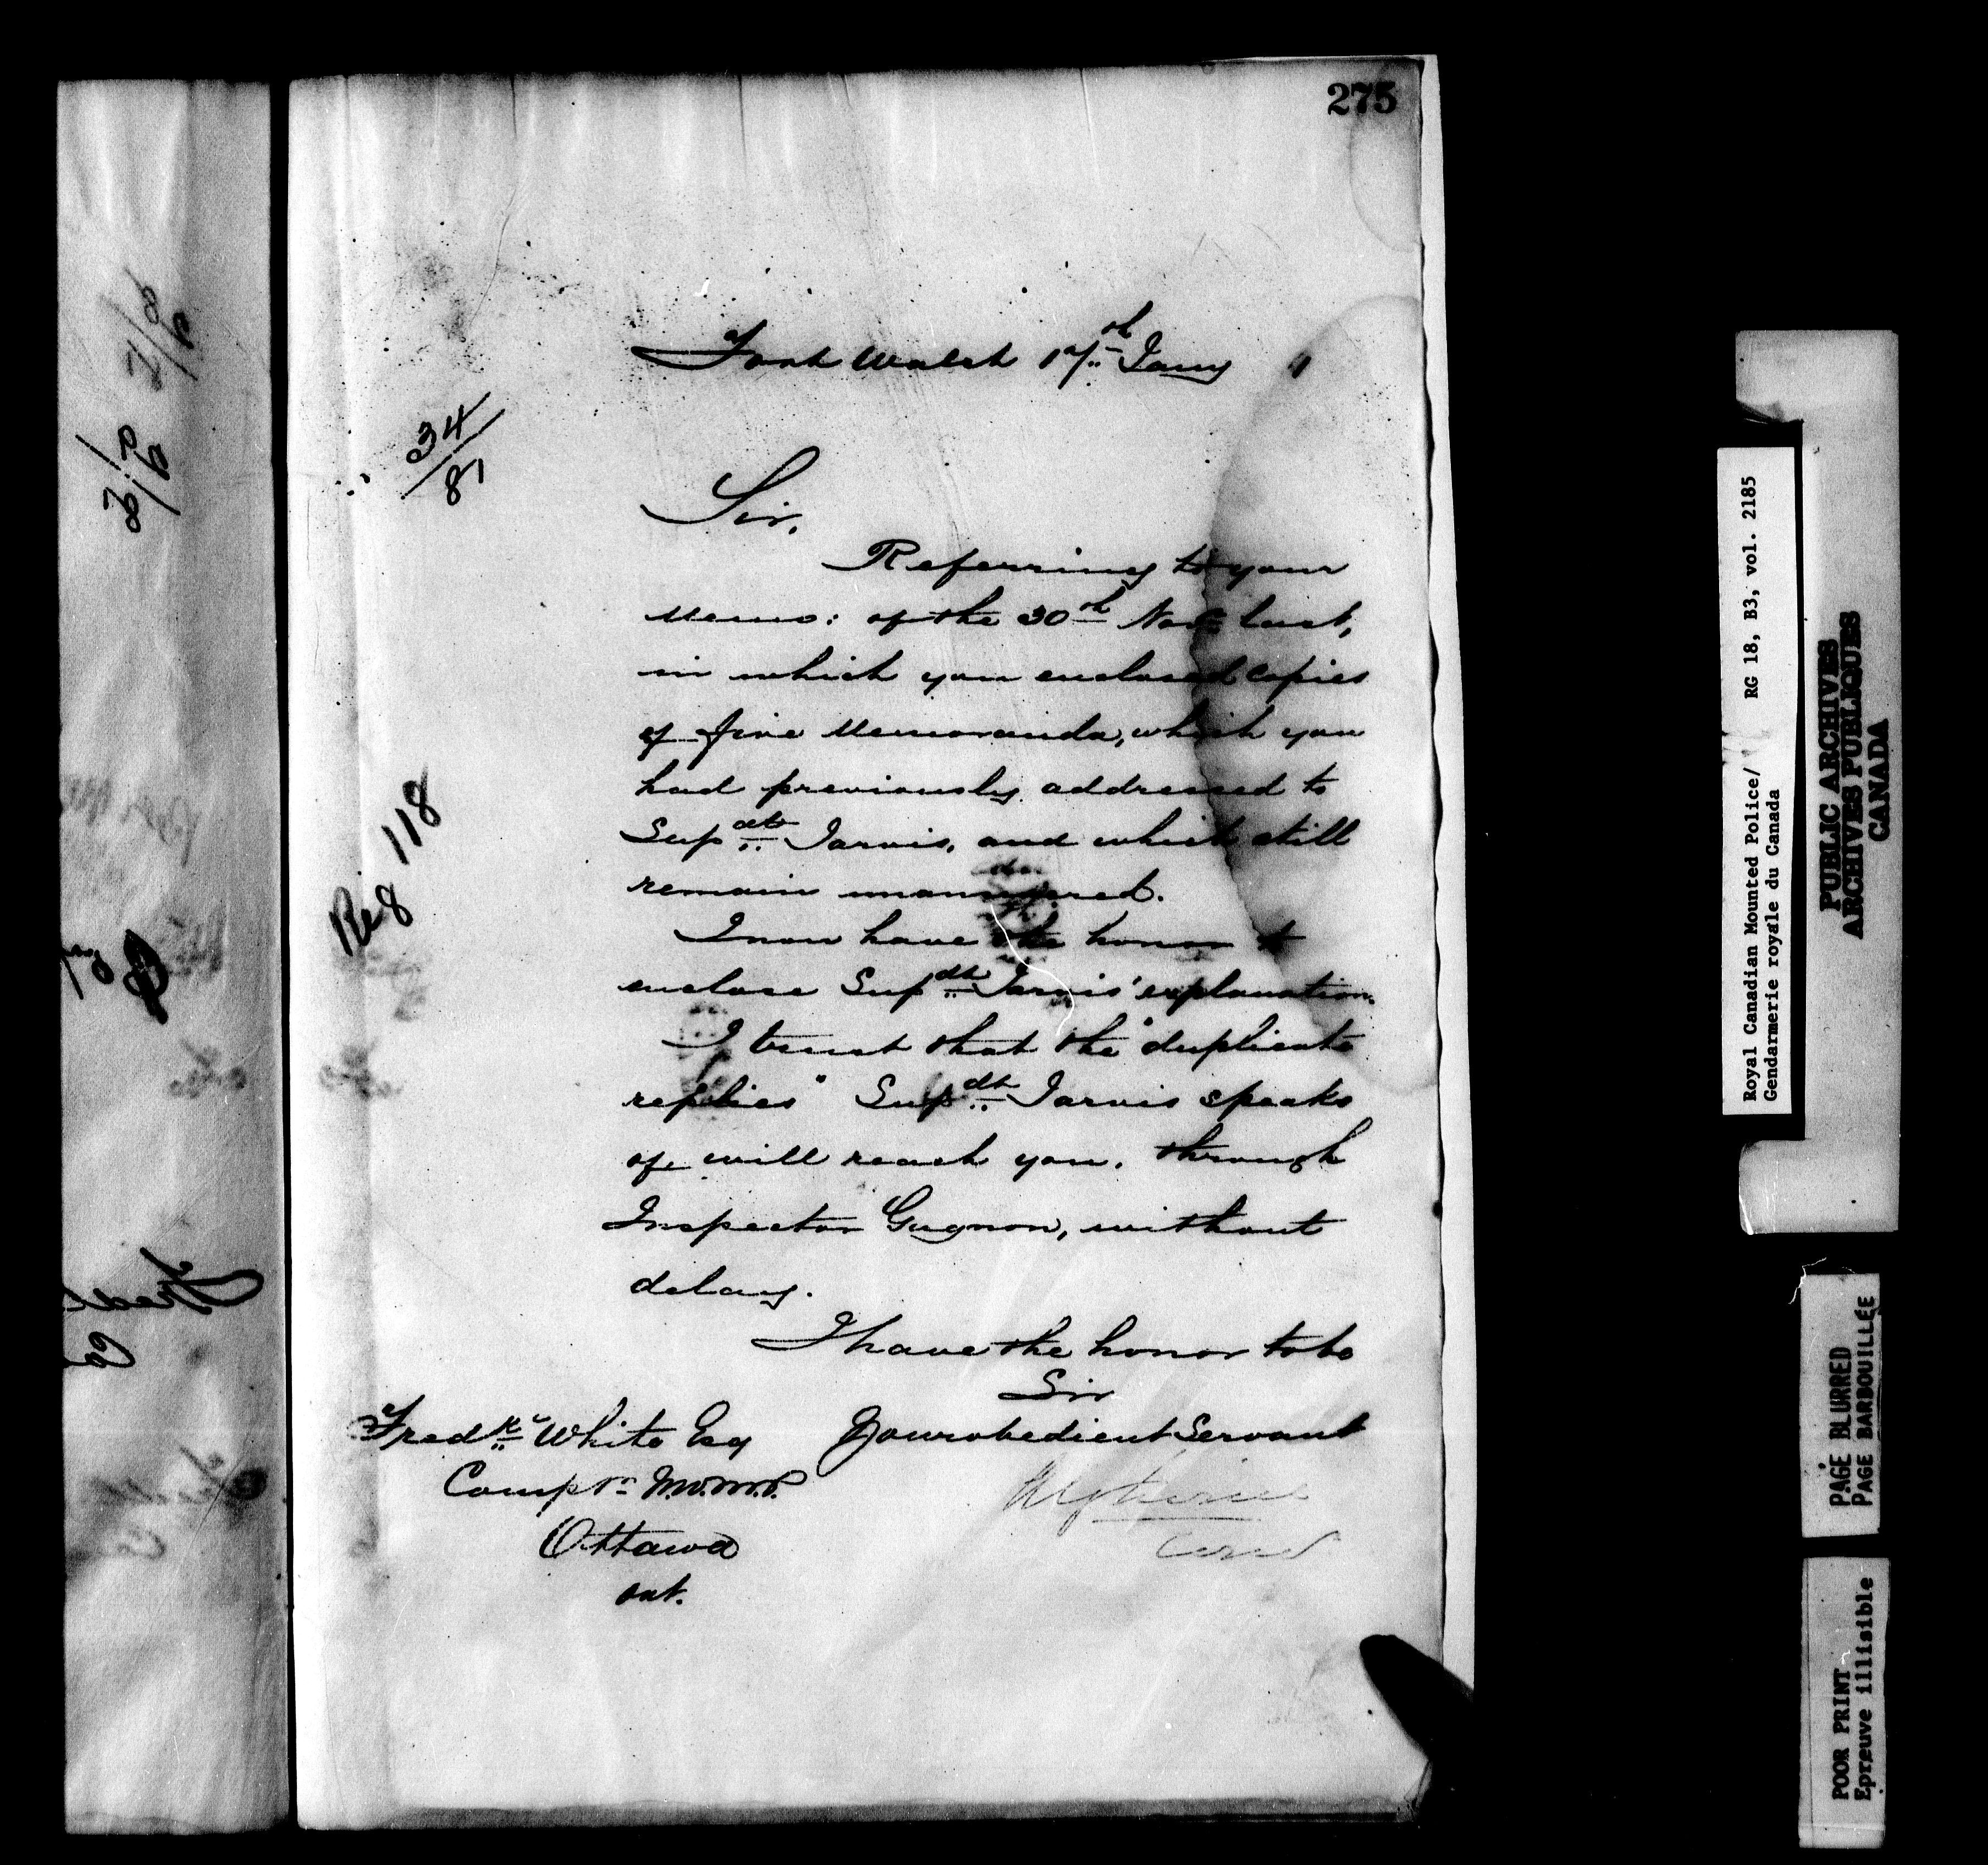 275
Fort Walsh 17th Jany
34/81
Sir,
Referring to your
Memo: of the 30th Novr last,
in which you enclosed copies
of five Memoranda, which you
had previously addressed to
Supdt Jarvis, and which still
remain unanswered.
I now have the honor to
enclose Supdt Jarvis' explanation.
I trust that the "duplicate
replies" Supdt Jarvis speaks
of will reach you, through
Inspector Gagnon, without
delay.
I have the honor to be
Sir
Your obedient Servant
Fredk White Esq
Comptr N.W.M.P.
Ottawa
Ont.
Reg 118
Royal Canadian Mounted Police/ RG 18, B3, vol. 2185
Gendarmerie royale du Canada
PUBLIC ARCHIVES
ARCHIVES PUBLIQUES
CANADA
PAGE BLURRED
PAGE BARBOUILLÉE
POOR PRINT
Epreuve illisible